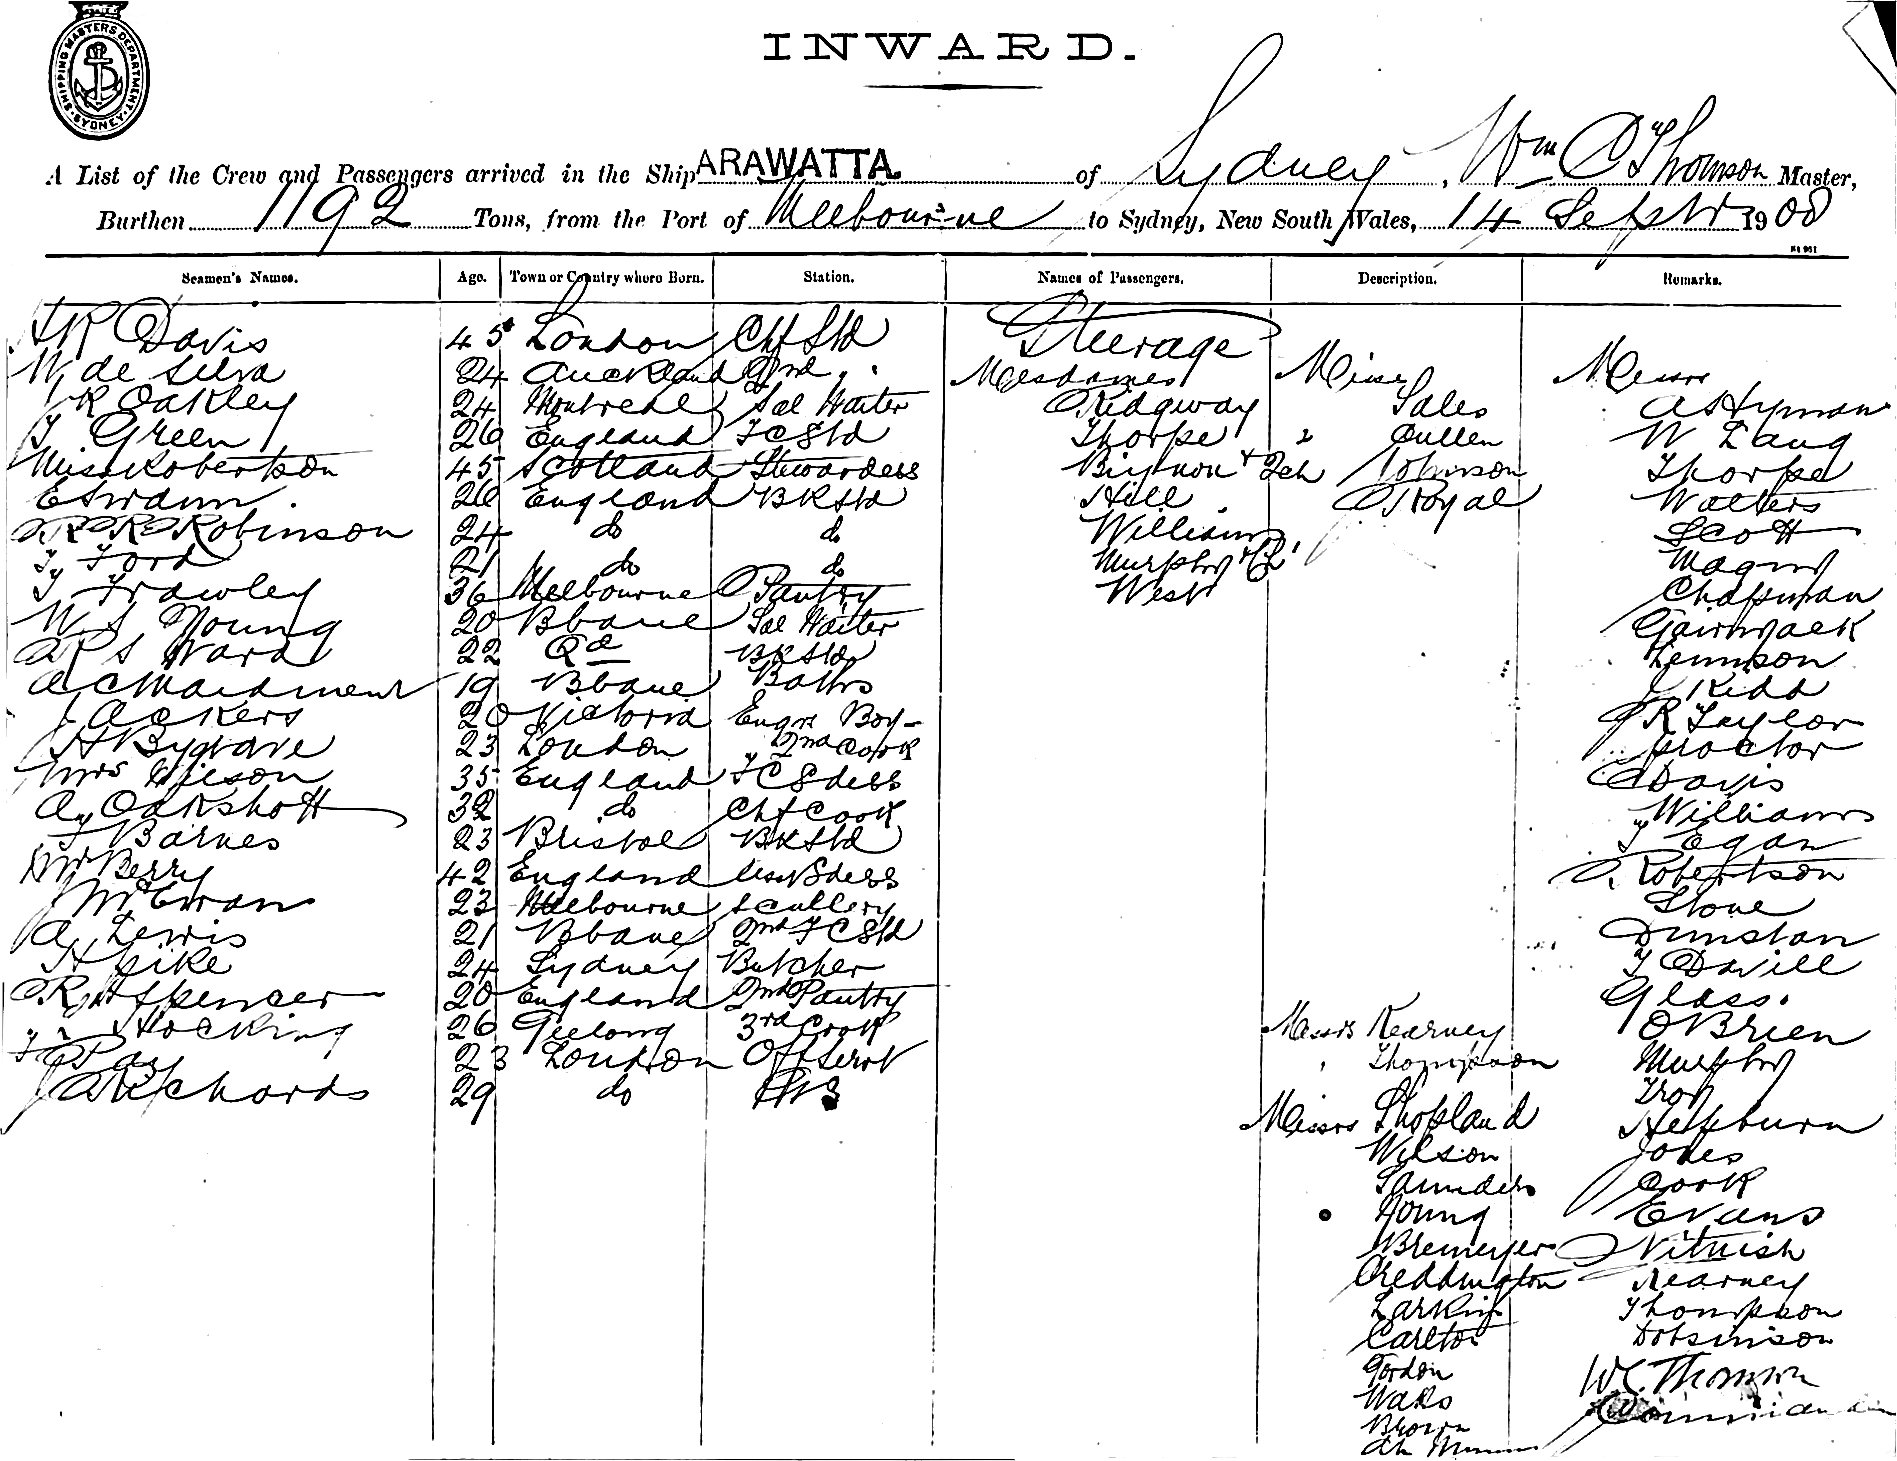 SHIPPING MASTERS DEPARTMENT
SYDNEY
INWARD.
A List of the Crew and Passengers arrived in the Ship ARAWATTA of Sydney, Wm C Thomson Master,
Burthen 1192 Tons, from the Port of Melbourne to Sydney, New South Wales, 14 Septr 1908
Seamen's Names. Age. Town or Country where Born. Station. Names of Passengers. Description. Remarks.
Davis 45 London Chf Std
W de Silva 24 Auckland 2nd "
Oakley 24 Montreal Sal Waiter
Green 26 England Std
Miss Robertson 45 Scotland Stewardess
E Swann 26 England BR Std
R Robinson 24 do do
Ford 21 do do
Frawley 36 Melbourne Pantry
W S Young 20 Bbane Sal Waiter
Ward 22 Qd BR Std
A C Maidment 19 Bbane Baths
Ackers 20 Victoria Engrs Boy
H Bygrave 23 London 2nd Cook
Mrs Wilson 35 England
A Oakshott 32 do Chf Cook
Barnes 23 Bristol BR Std
Mrs Berry 42 England
McEwan 23 Melbourne Scullery
A Lewis 21 Bbane 2nd Std
H Pike 24 Sydney Butcher
R H Spencer 20 England 2nd Pantry
Hocking 26 Geelong 3rd Cook
Day 23 London Off Servt
A Richards 29 do
Steerage
Mesdames
Ridgway
Thorpe
Hill
Williams
Murphy + Ch
West
Misses
Sales
" Cullen
Johnson
Royal
Messrs Kearney
" Thompson
Messrs Shopland
Wilson
Saunders
Young
Bremeyer
Larkin
Carlton
Gordon
Brown
Messrs
A S Hyman
W Lang
Thorpe
Walters
Scott
Chapman
Tennison
J Kidd
R Taylor
Proctor
Davis
Williams
Egan
Robertson
Stone
Dunstan
Davill
Glass.
O'Brien
Murphy
Troy
Hepburn
Jones
Cook
Evans
Kearney
Thompson
Dobsinson
WC Thomson
Commander